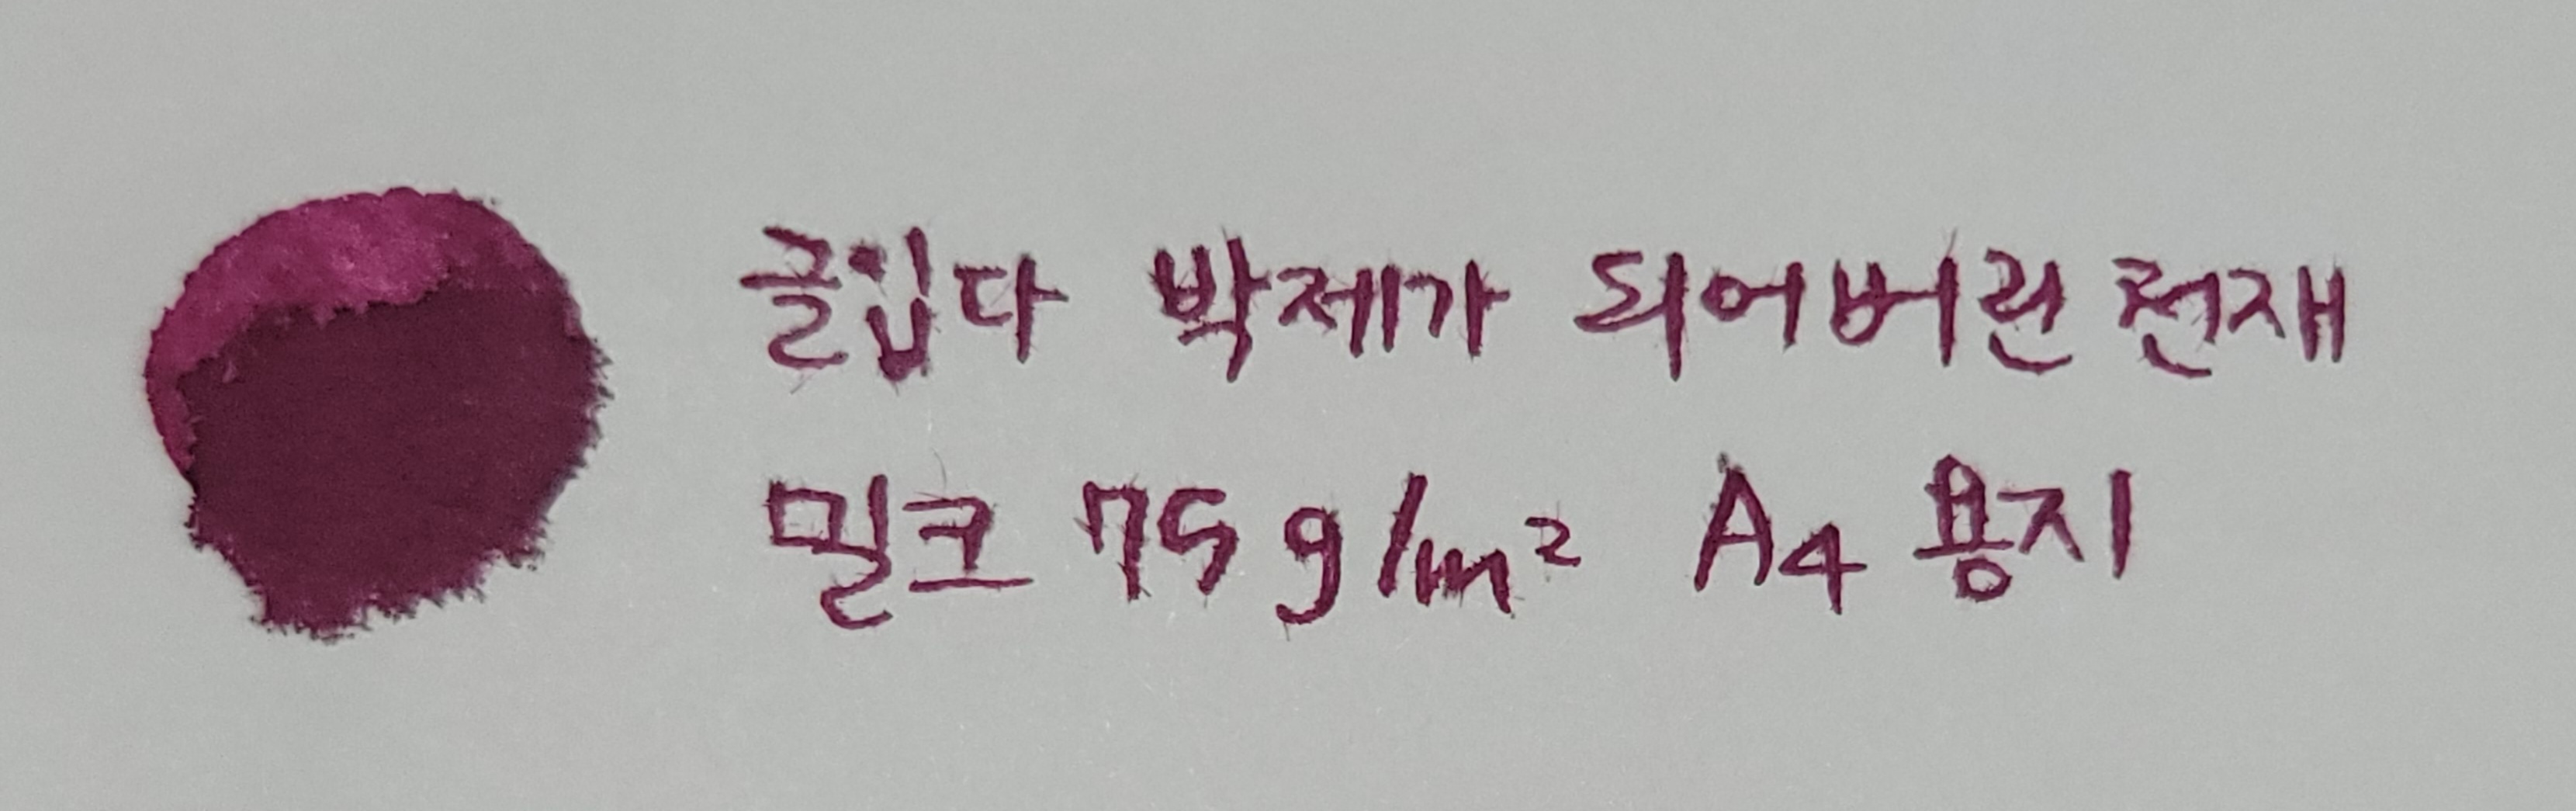 글입다 박제가 되어버린 천재
밀크 75g/m² A4 용지